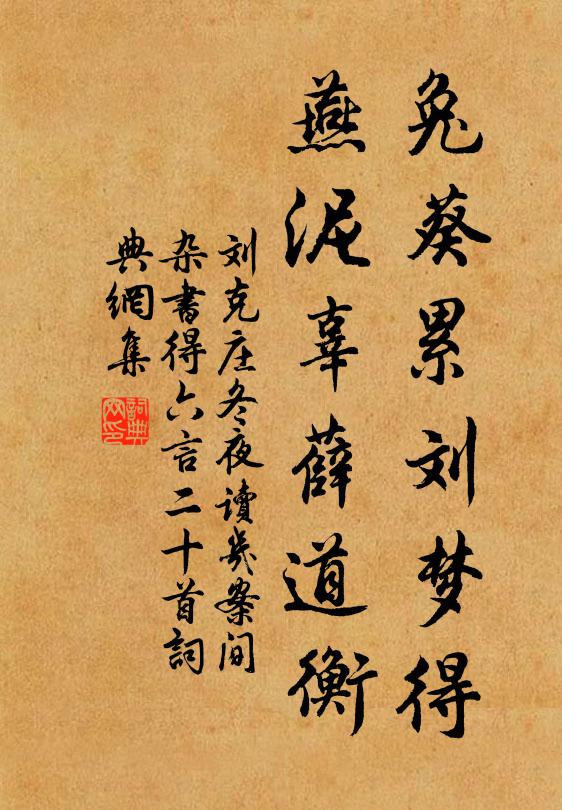 兔葵累刘梦得
燕泥辜薛道衡
刘克庄冬夜读几案间
杂书得六言二十首詞
典網集
詞典網印